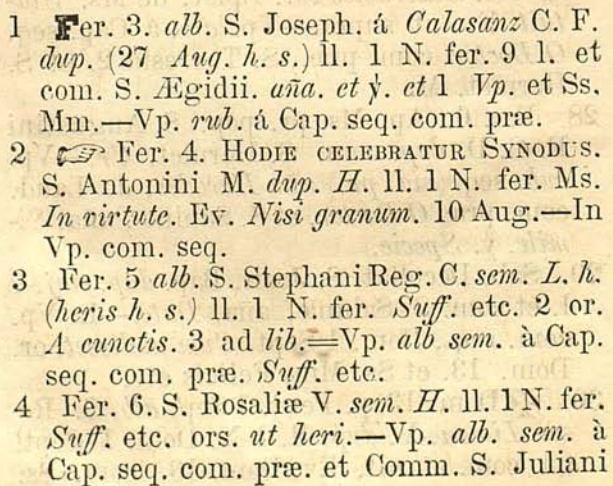 1 Fer. 3. alb. S. Joseph. á Calasanz C. F.
dup. (27 Aug. h. s.) ll. 1 N. fer. 9 l. et
com. S. Ægidii. aña. et ℣. et 1 Vp. et Ss.
Mm.—Vp. rub. á Cap. seq. com. præ.
2 ☞ Fer. 4. HODIE CELEBRATUR SYNODUS.
S. Antonini M. dup. H. ll. 1 N. fer. Ms.
In virtute. Ev. Nisi granum. 10 Aug.—In
Vp. com. seq.
3 Fer. 5 alb. S. Stephani Reg. C. sem. L. h.
(heris h. s.) ll. 1 N. fer. Suff. etc. 2 or.
A cunctis. 3 ad lib.=Vp. alb sem. à Cap.
seq. com. præ. Suff. etc.
4 Fer. 6. S. Rosaliæ V. sem. H. ll. 1 N. fer.
Suff. etc. ors. ut heri.—Vp. alb. sem. à
Cap. seq. com. præ. et Comm. S. Juliani